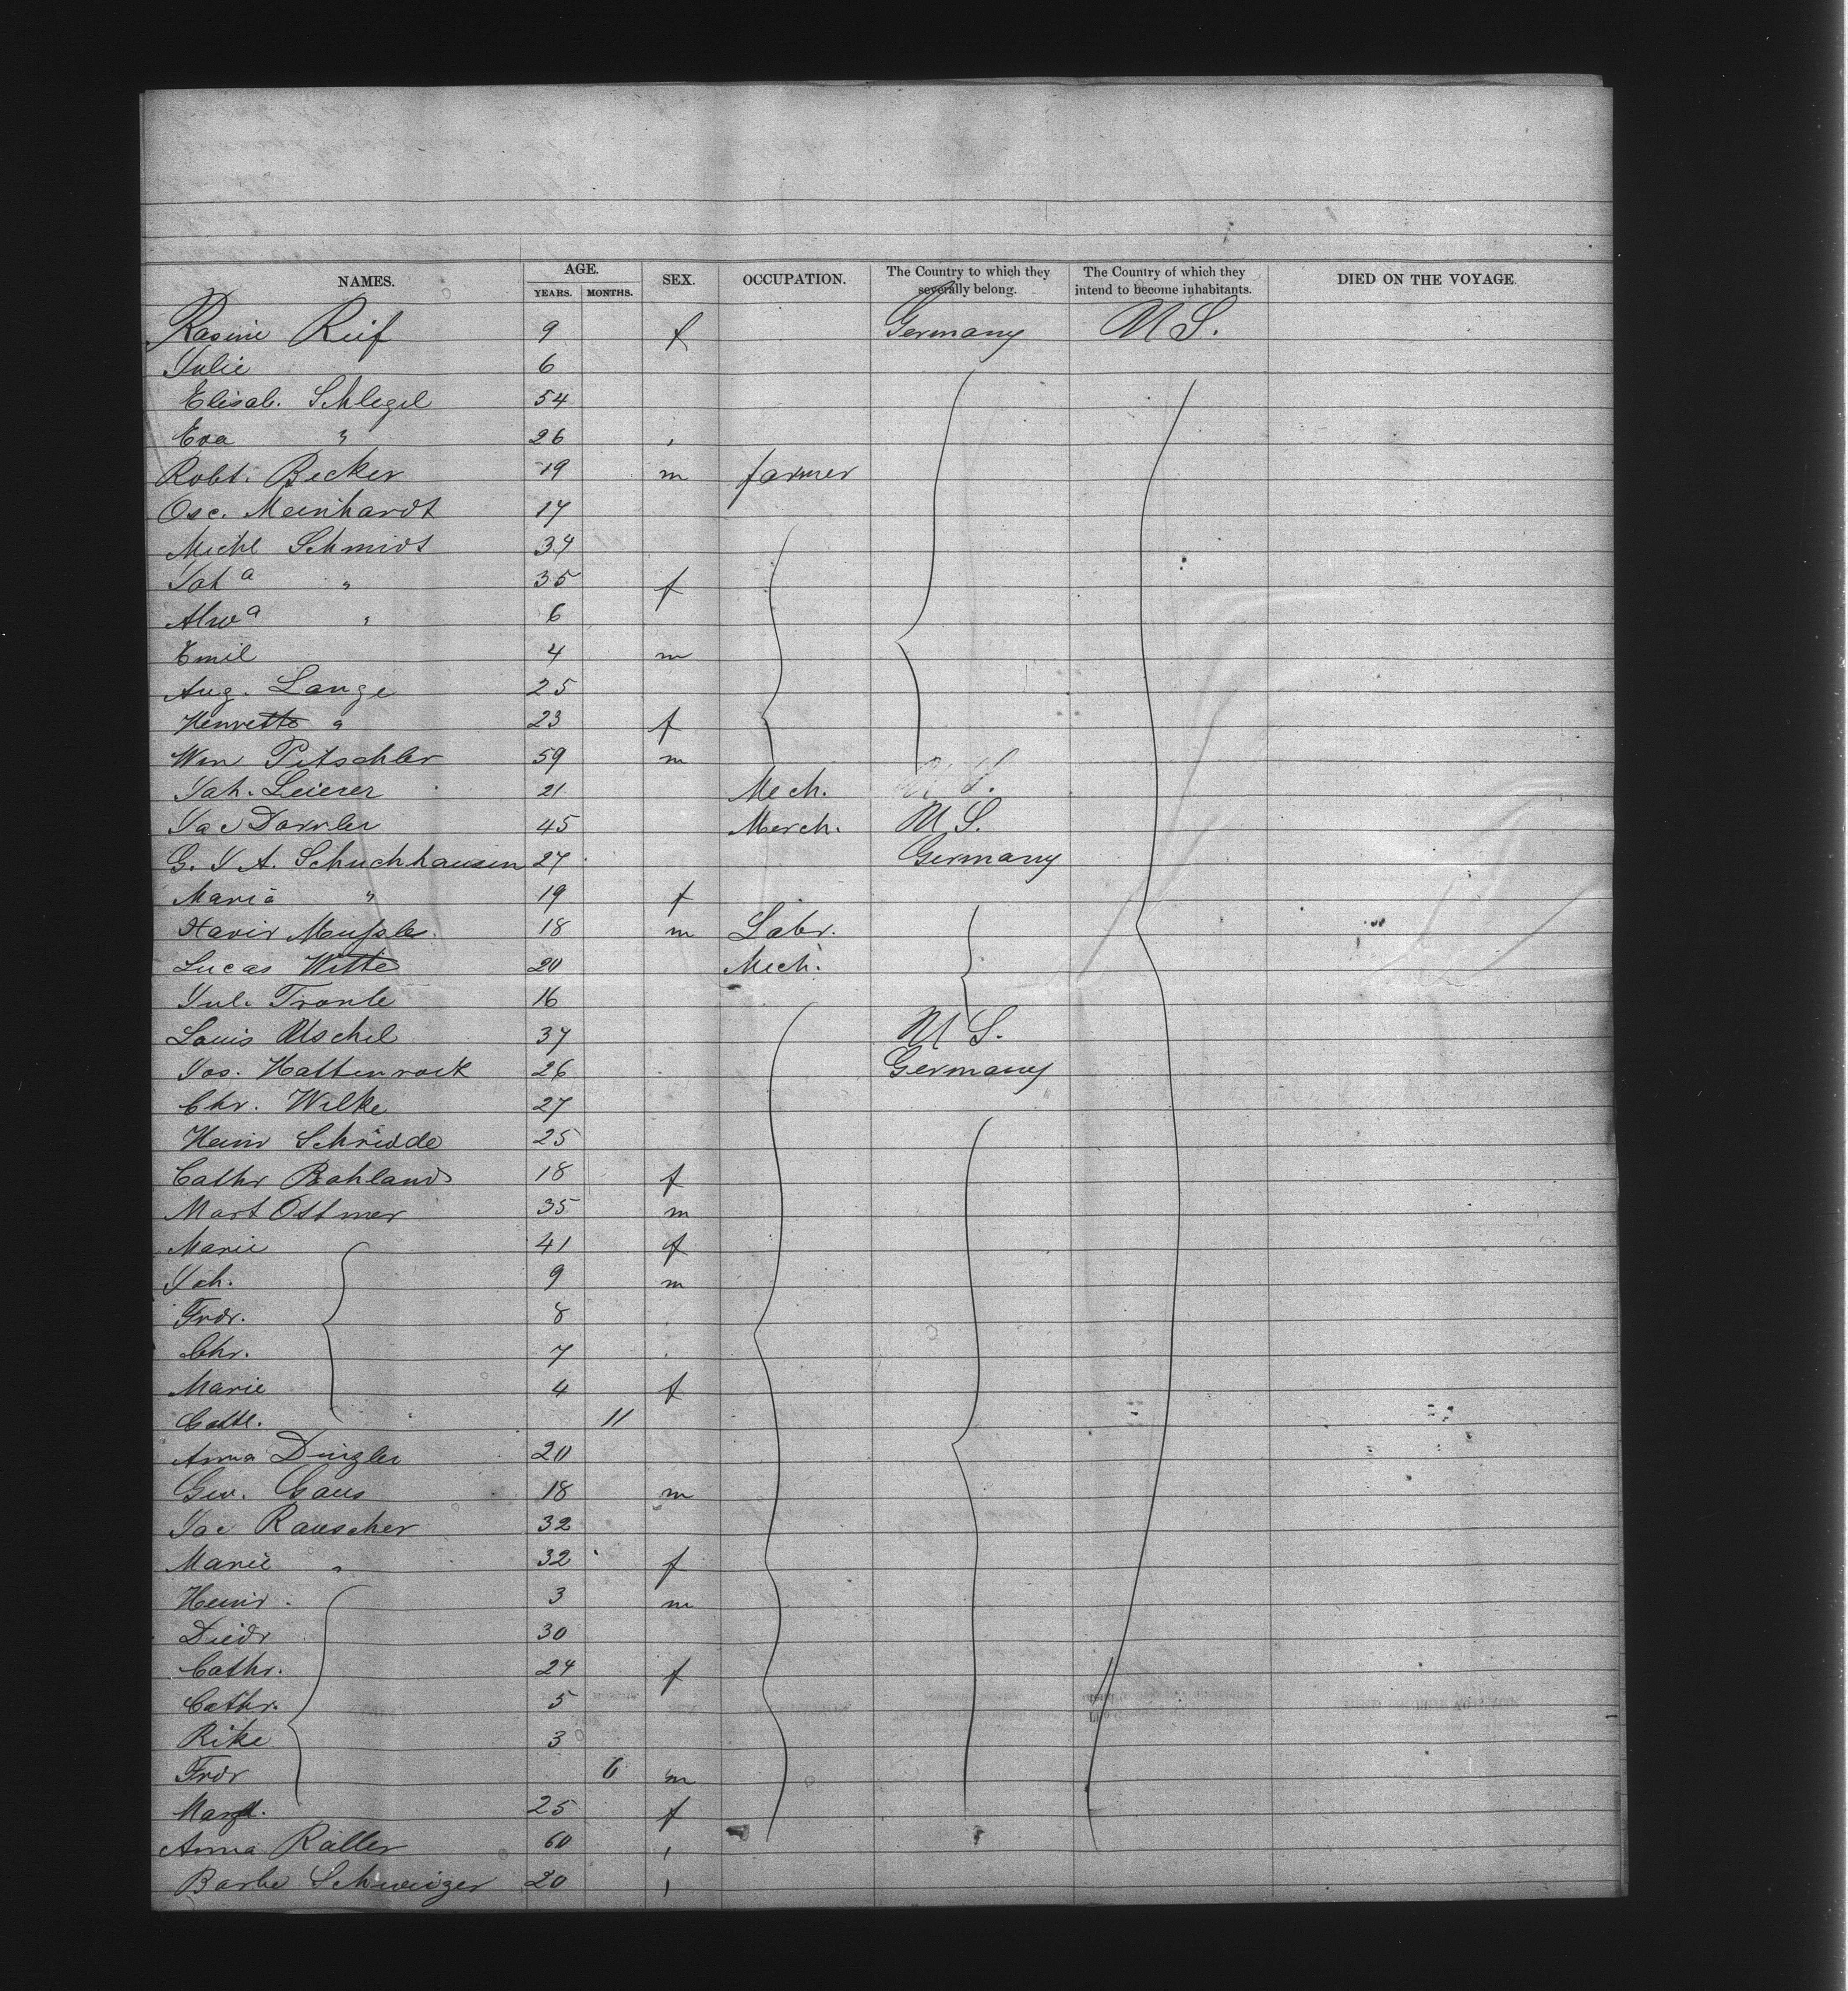 NAMES. AGE. SEX. OCCUPATION. The Country to which they severally belong. The Country of which they intend to become inhabitants. DIED ON THE VOYAGE.
YEARS. MONTHS.
Rosine Reif 9 f Germany U S.
Julie 6
Elisab. Schlegel 54
Eva " 26 "
Robt. Becker 19 m farmer
Osc. Meinhardt 17
Michl Schmidt 34
Joha " 35 f
Alwa " 6
Emil 4 m
Aug. Lange 25
Henrette " 23 f
Wm Pitschler 59 m
Joh. Leierer 21 Mech.
Jac 45 Merch. U S.
G. J A. Schuchhausen 27 Germany
Maria " 19 f
Xavir 18 m Labr.
Lucas Witte 20 Mech.
Jul. 16
Louis 37 U S.
Jos. Hattenrock 26 Germany
Chr. Wilke 27
Heinr Schridde 25
Cathr Bohland 18 f
Mart Ottmer 35 m
Marie 41 f
Joh. 9 m
Frdr. 8
Chr. 7
Marie 4 f
11
Anna Dinzler 20
Geo. Gaus 18 m
Jac Rauscher 32
Marie " 32 f
Heinr. 3 m
Diedr 30
Cathr. 24 f
Cathr. 5
Rike 3
Frdr 6 m
25 f
Anna Raller 60 "
Barbe Schweizer 20 "